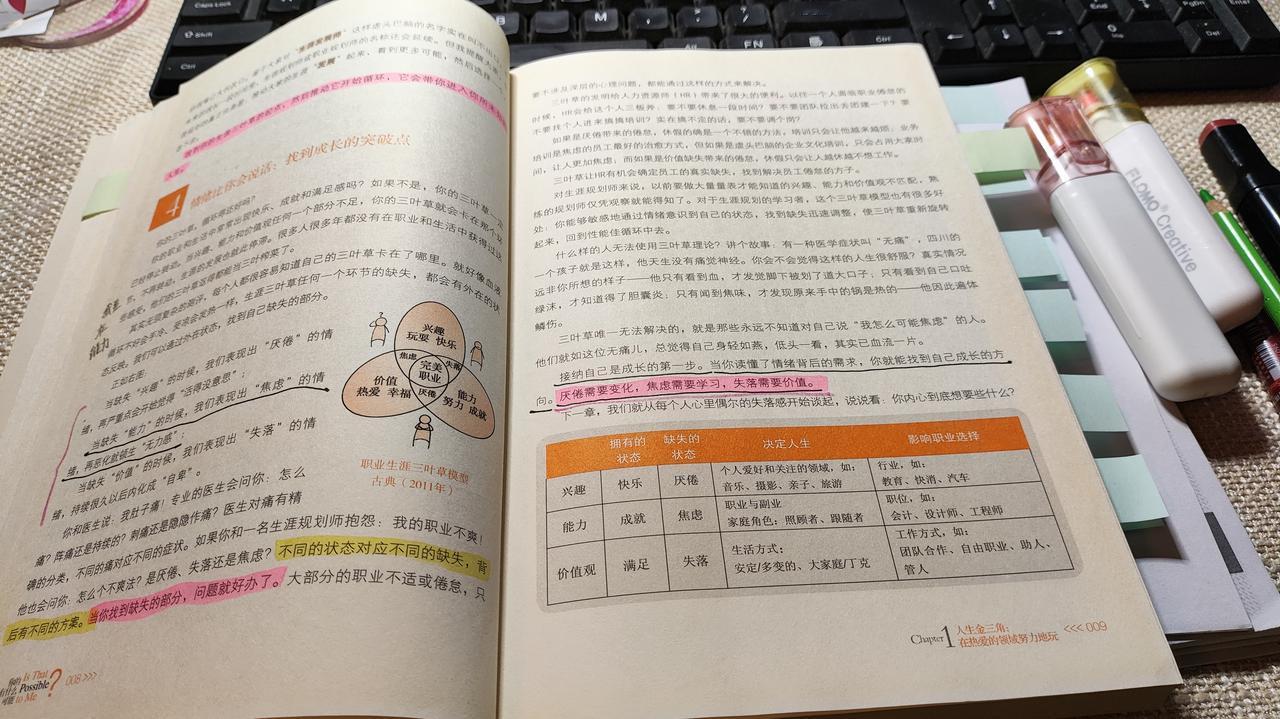 "生涯发展师"
起来，看到更多可能，然后选择
然后推动它开始循环，它会带你进入你所未知
4 情绪比你会说话：找到成长的突破点
你的三叶草，
你的职业和生活中常常出现快乐、成就和满足感吗？如果不是，你的三叶草一定
当兴趣、能力和价值观任何一个部分不足，你的三叶草就会卡在那个
生涯的发展也就此停滞。很多人很多年都没有在职业和生活中获得过这
些感受，他们的三叶草
其实无须复杂的测评，每个人都很容易知道自己的三叶草卡在了哪里。就好像血液
循环不好会手冷、受凉会发热一样，生涯三叶草任何一个环节的缺失，都会有外在的状
态反映。我们可以通过外在状态，找到自己缺失的部分。
正如右图：
当缺失"兴趣"的时候，我们表现出"厌倦"的情
绪，再严重点会开始觉得"活得没意思"；
当缺失"能力"的时候，我们表现出"焦虑"的情
绪，再恶化就顿生"无力感"；
当缺失"价值"的时候，我们表现出"失落"的情
绪，持续很久以后内化成"自卑"。
你和医生说：我肚子痛！专业的医生会问你：怎么
痛？阵痛还是持续的？刺痛还是隐隐作痛？医生对痛有精
确的分类，不同的痛对应不同的症状。如果你和一名生涯规划师抱怨：我的职业不爽！
他也会问你：怎么个不爽法？是厌倦、失落还是焦虑？不同的状态对应不同的缺失，背
后有不同的方案。当你找到缺失的部分，问题就好办了。大部分的职业不适或倦怠，只
兴趣
玩耍 快乐
焦虑
失落
完美
职业
厌倦
价值
热爱 幸福
能力
努力 成就
职业生涯三叶草模型
古典（2011年）
Is That
Possible
to Me
?
008 >>>
要不涉及深层的心理问题，都能通过这样的方式来解决。
三叶草的发明给人力资源师（HR）带来了很大的便利。以往一个人面临职业倦怠的
时候，HR会给这个人三板斧：要不要休息一段时间？要不要团队拉出去团建一下？要
不要找个人进来搞搞培训？实在搞不走的话，要不要调个岗？
如果是厌倦带来的倦怠，休假的确是一个不错的方法，培训只会让他越来越烦；业务
培训是焦虑的员工最好的治愈方式，但如果是虚头巴脑的企业文化培训，只会占用大家时
间，让人更加焦虑；而如果是价值缺失带来的倦怠，休假只会让人越休越不想工作。
三叶草让HR有机会确定员工的真实缺失，找到解决员工倦怠的方子。
对生涯规划师来说，以前要做大量量表才能知道的兴趣、能力和价值观不匹配，熟
练的规划师仅凭观察就能得知了。对于生涯规划的学习者，这个三叶草模型也有很多好
处：你能够敏感地通过情绪意识到自己的状态，找到缺失迅速调整，使三叶草重新旋转
起来，回到性能佳循环中去。
什么样的人无法使用三叶草理论？讲个故事：有一种医学症状叫"无痛"，四川的
一个孩子就是这样，他天生没有痛觉神经。你会不会觉得这样的人生很舒服？真实情况
远非你所想的样子——他只有看到血，才发觉脚下被划了道大口子；只有看到自己口吐
绿沫，才知道得了胆囊炎；只有闻到焦味，才发现原来手中的锅是热的——他因此遍体
鳞伤。
三叶草唯一无法解决的，就是那些永远不知道对自己说"我怎么可能焦虑"的人。
他们就如这位无痛儿，总觉得自己身轻如燕，低头一看，其实已血流一片。
接纳自己是成长的第一步。当你读懂了情绪背后的需求，你就能找到自己成长的方
向。厌倦需要变化，焦虑需要学习，失落需要价值。
下一章，我们就从每个人心里偶尔的失落感开始谈起，说说看：你内心到底想要些什么？
拥有的状态 缺失的状态 决定人生 影响职业选择
兴趣 快乐 厌倦 个人爱好和关注的领域，如：音乐、摄影、亲子、旅游 行业，如：教育、快消、汽车
能力 成就 焦虑 职业与副业 家庭角色：照顾者、跟随者 职位，如：会计、设计师、工程师
价值观 满足 失落 生活方式：安定/多变的、大家庭/丁克 工作方式，如：团队合作、自由职业、助人、管人
Chapter 1 人生金三角：
在热爱的领域努力地玩
<<< 009
FLOMO® Creative
Shift
Alt
FN
Ctrl
M